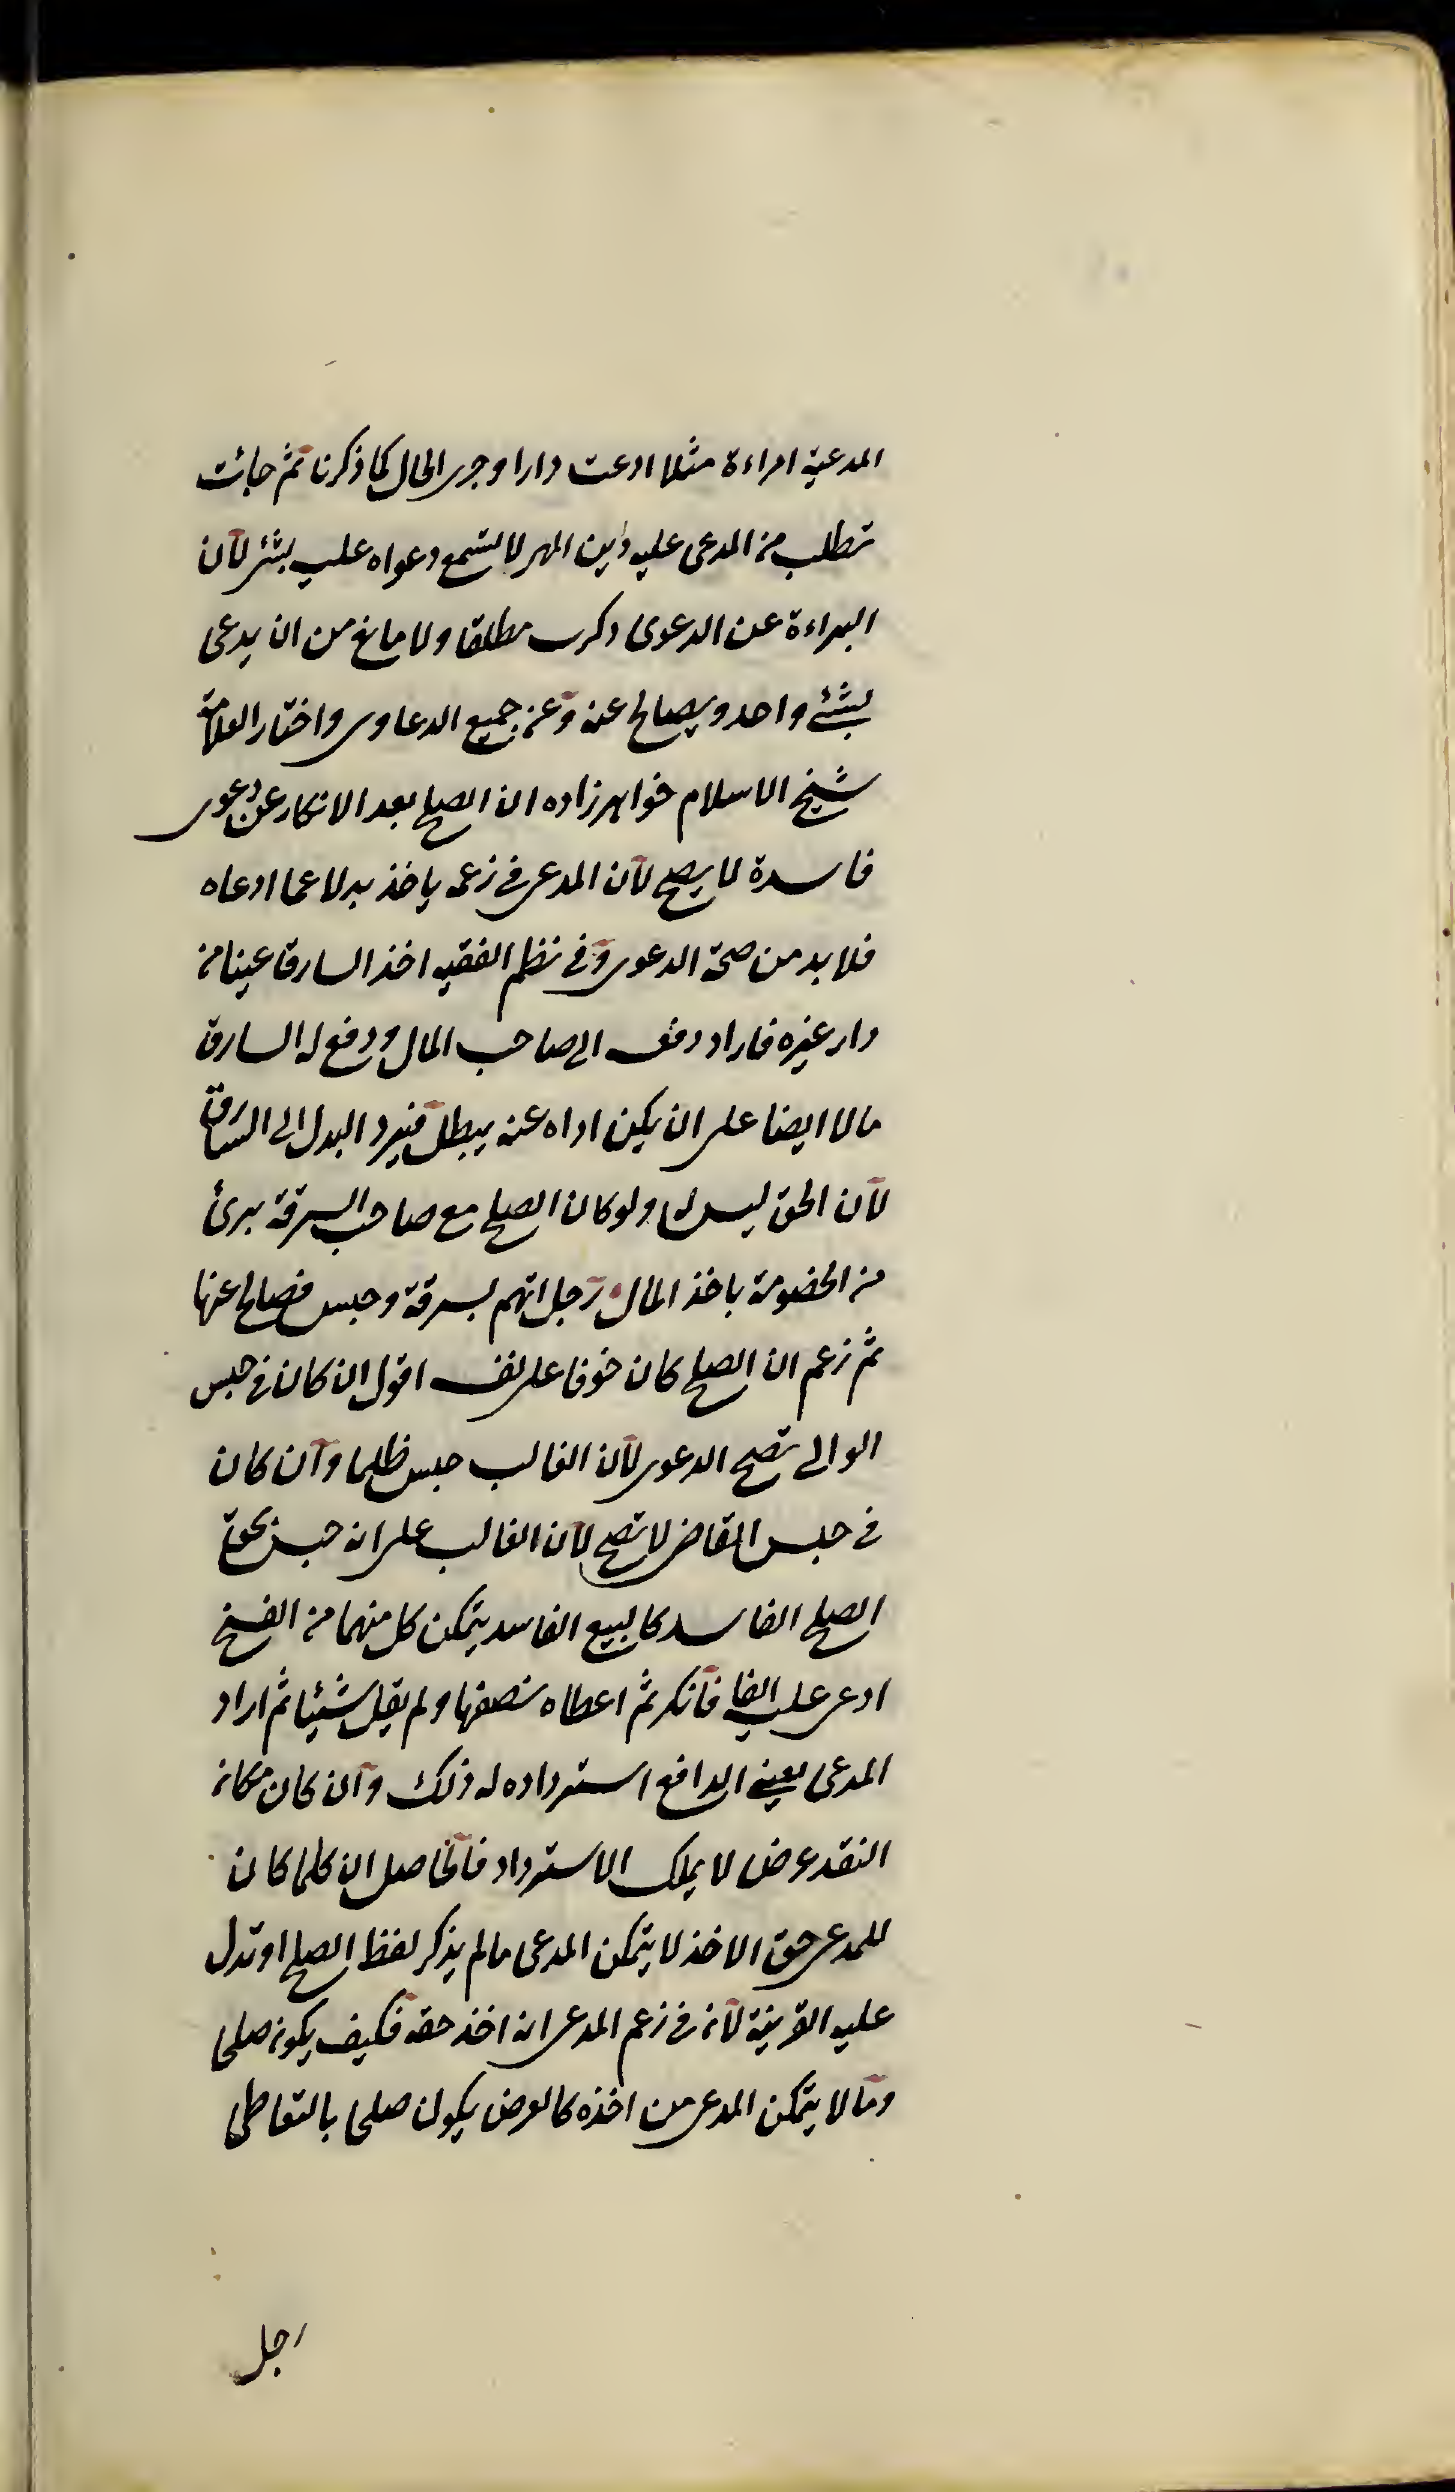 المدعية امراءة مثلا ادعت دارا وجرى الحال كما ذكرنا ثم جائت
تطلب من المدعى عليه دين المهر لا تسمع دعواه عليه بشئ لان
البراءة عن الدعوى ذكرت مطلقا ولا مانع من ان يدعى
بشئ واحد ويصالح عنه وعن جميع الدعاوى واختار العلامة
شيخ الاسلام خواهرزاده ان الصلح بعد الانكار عن دعوى
فاسدة لا يصح لان المدعى فى زعمه ياخذ بدلا عما ادعاه
فلا بد من صحة الدعوى وفى نظم الفقيه اخذ السارق عينا من
دار غيره فاراد دفعه الى صاحب المال ودفع له السارق
مالا ايضا على ان يكف اداه عنه يبطل فيرد البدل الى السارق
لان الحق ليس له ولو كان الصلح مع صاحب السرقة برئ
من الخصومة باخذ المال رجل اتهم بسرقة وحبس فصالح عنها
ثم زعم ان الصلح كان خوفا على نفسه اقول ان كان فى حبس
الوالى تصح الدعوى لان الغالب حبس ظلما وان كان
فى حبس القاضى لا تصح لان الغالب على انه حبس بحق
الصلح الفاسد كالبيع الفاسد يتمكن كل منهما من الفسخ
ادعى عليه الفا فانكر ثم اعطاه نصفها ولم يقل شيئا ثم اراد
المدعى يعنى الدافع استرداده له ذلك وان كان مكان
النقد عرض لا يملك الاسترداد فالحاصل ان كلما كان
للمدعى حق الاخذ لا يتمكن المدعى مالم يذكر لفظ الصلح او تدل
عليه القرينة لانه فى زعم المدعى انه اخذ حقه فكيف يكون صلحا
وما لا يتمكن المدعى من اخذه كالعرض يكون صلحا بالتعاطى
رجل